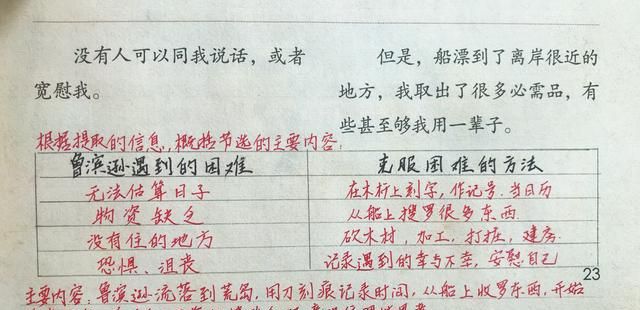 没有人可以同我说话，或者
宽慰我。
但是，船漂到了离岸很近的
地方，我取出了很多必需品，有
些甚至够我用一辈子。
根据提取的信息，概括节选的主要内容：
鲁滨逊遇到的困难 克服困难的方法
无法估算日子 在木杆上刻字，作记号，当日历
物资缺乏 从船上搜罗很多东西
没有住的地方 砍木材，加工，打桩，建房
恐惧、沮丧 记录遇到的幸与不幸，安慰自己
23
主要内容：鲁滨逊流落到荒岛，用刀刻痕记录时间，从船上收罗东西，开始